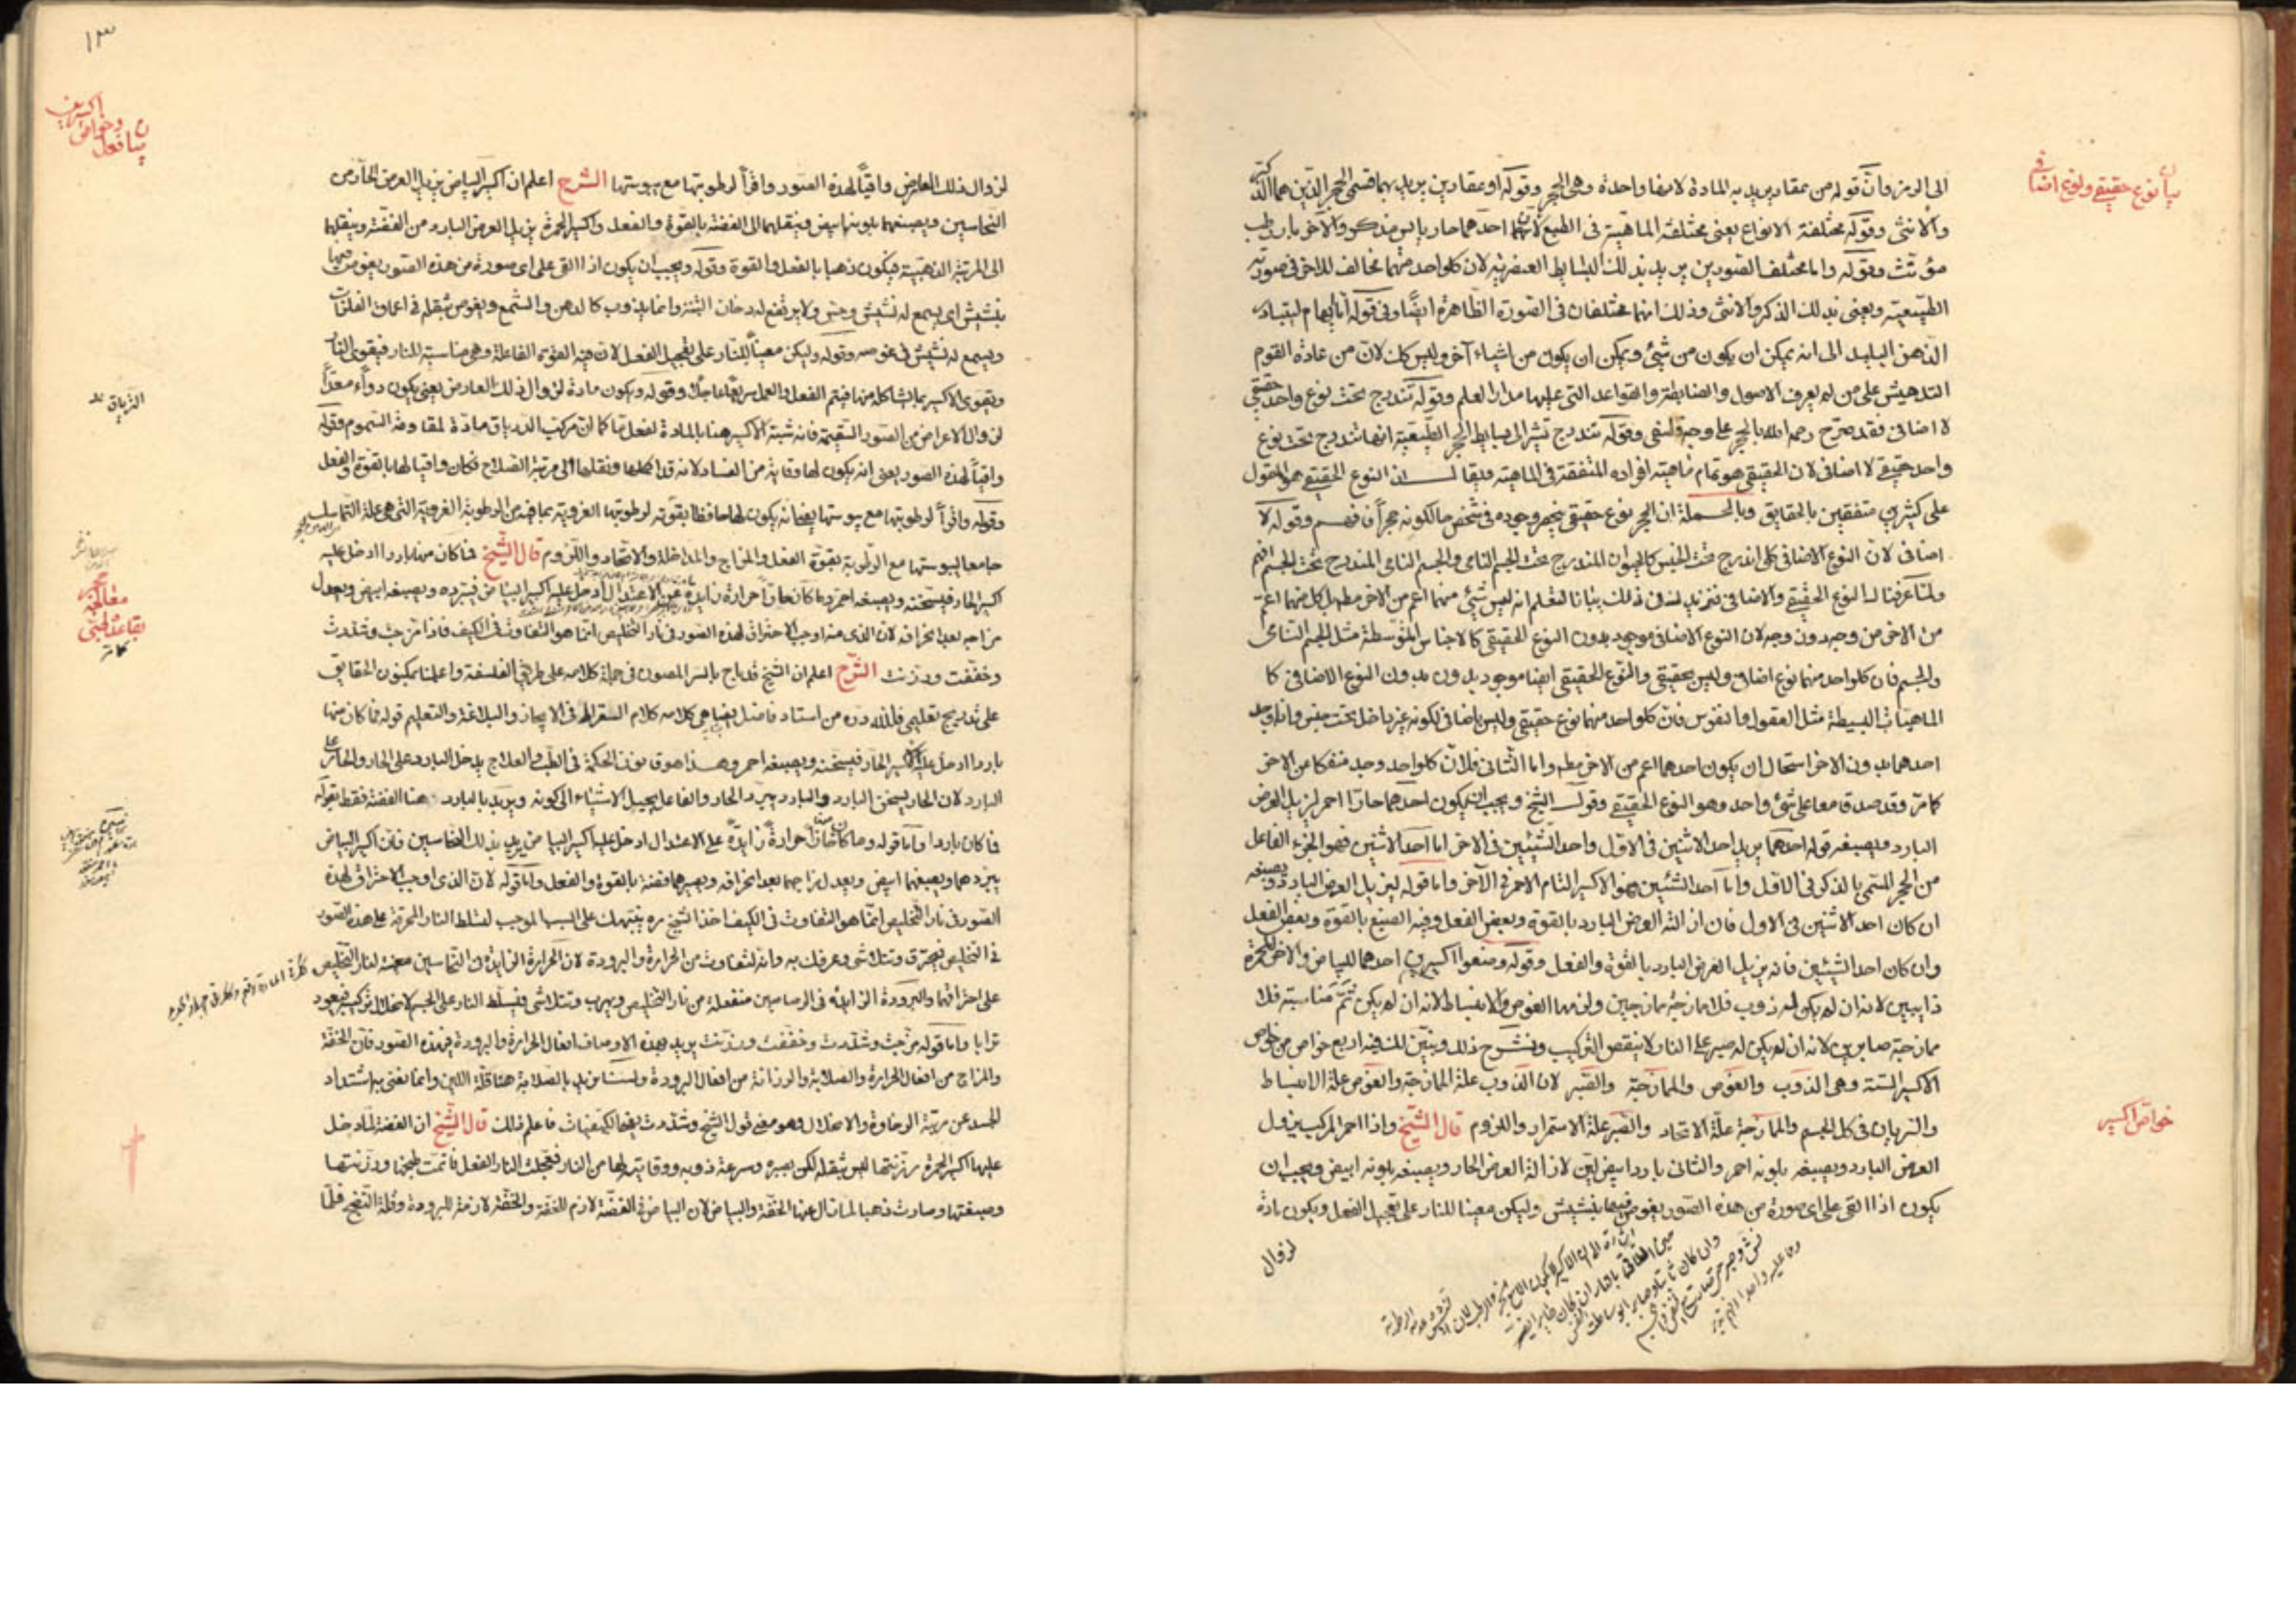 بيان نوع حقيقي ونوع اضافي
الى الرمز وان قوله من مقادير يريد به المادة لامفا واحدة وهى الحجر وقوله او مقادين يريد بهما قسمى الحجر الذين هما الذكر
والانثى وقوله مختلفة الانواع يعنى مختلفة الماهية فى الطبع لان احدهما حار يابس مذكر والآخر بارد رطب
مؤنث وقوله واما مختلف الصورين يريد بذلك البسايط العنصرية لان كلواحد منهما مخالف للاخر فى صورته
الطبيعية ويعنى بذلك الذكر والانثى وذلك انهما مختلفان فى الصورة الظاهرة ايضا وفى قوله اما ايهام ليتبادر
الذهن البليد الى انه يمكن ان يكون من شئ ويمكن ان يكون من اشياء آخر وليس كك لان من عادة القوم
التدهيش على من لم يعرف الاصول والضابطة والقواعد التى عليها مدار العلم وقوله تندرج تحت نوع واحد حقيقي
لا اضافى فقد صرح رحمه الله بالحجر على وجه وقوله تندرج تشير الى بسايط الحجر الطبيعية انها تندرج تحت نوع
واحد حقيقي لا اضافى لان الحقيقى هو تمام ماهية افراده المتفقة فى الماهية فيقال ان النوع الحقيقي هو المقول
على كثيرين متفقين بالحقايق وبالجملة ان الحجر نوع حقيقى ينحصر وجوده فى شخص ما لكونه حجرا فافهم وقوله لا
اضافى لان النوع الاضافى كلى اندرج تحت الجنس كالحيوان المندرج تحت الجسم النامى والجسم النامى المندرج تحت الجسم افهم
ولما عرفنا النوع الحقيقي والاضافى نريد فى ذلك بيانا لتعلم انه ليس شئ منهما اعم من الاخر مط بل كل منهما اعم
من الاخر من وجه دون وجه لان النوع الاضافى موجود بدون النوع الحقيقى كالاجناس المتوسطة مثل الجسم النامى
والجسم فان كلواحد منهما نوع اضافى وليس بحقيقى والنوع الحقيقى ايضا موجود بدون النوع الاضافى كما
الماهيات البسيطة مثل العقول والنفوس فان كلواحد منهما نوع حقيقى وليس باضافى لكونه غير داخل تحت جنس واذا وجد
احدهما بدون الاخر استحال ان يكون احدهما اعم من الاخر مط واما الثانى فلان كلواحد وجد منفكا من الاخر
كما مر وقد صدقا معا على شئ واحد وهو النوع الحقيقي وقول الشيخ ويجب ان يكون احدهما حارا احمر ليزيل العرض
البارد ويصبغه قوله احدهما يريد احد الاثنين فى الاول واحد الشيئين فى الاخر اما احد الاثنين فهو الجزء الفاعل
من الحجر المسمى بالذكر فى الاول واما احد الشيئين فهو الاكسير التام الاحمر فى الآخر واما قوله ليزيل العرض البارد ويصبغه
ان كان احد الاثنين فى الاول فان ازالته العرض البارد بالقوة وبعض الفعل وفيه الصبغ بالقوة وبعض الفعل
وان كان احد الشيئين فانه يزيل العرض البارد بالقوة والفعل وقوله وصنعوا اكسيرين احدهما للبياض والاخر للحمرة
ذايبين لانه ان لم يكن له ذوب فلا ممازجة ممازجين ولزمهما الغوص والانبساط لانه ان لم يكن ثم مناسبة فلا
ممازجة صابرين لانه ان لم يكن له صبر على النار لانتقض التركيب ونشرح ذلك ونبين ان فيه اربع خواص من خواص
الاكسير الستة وهى الذوب والغوص والممازجة والصبر لان الذوب علة الممازجة والغوص علة الانبساط
والسريان فى كل الجسم والممازجة علة الاتحاد والصبر علة الاستمرار واللزوم قال الشيخ واذا احمر المركب يزول
العرض البارد ويصبغه بلونه احمر والثانى باردا ابيض لين لازالة العرض الحار ويصبغه بلونه ابيض ويجب ان
يكون اذا القى على اى صورة من هذه الصور يغوص فيها بنشيش وليكن معينا للنار على تعجيل الفعل ويكون مادة
خواص اكسير
لزوال
١٣
بيان افعال وخواص اكسيرين
لزوال ذلك العارض واقيًا لهذه الصور وافرًا لرطوبتها مع يبوستها الشرح اعلم ان اكسير البياض يزيل العرض الحار من
النحاسين ويصبغهما بلونه ابيض وينقلهما الى الفضة بالقوة والفعل واكسير الحمرة يزيل العرض البارد من الفضة وينقلها
الى المرتبة الذهبية فيكون ذهبا بالفعل والقوة وقوله ويجب ان يكون اذا القى على اى صورة من هذه الصور يغوص فيها
بنشيش اى يسمع له نشيش وحس ولا يرتفع له دخان البتة وانما يذوب كالدهن والشمع ويغوص بثقله فى اعماق الفلزات
ويسمع له نشيش فى غوصه وقوله وليكن معيناً للنار على تعجيل الفعل لان فيه القوة الفاعلة وهى مناسبة للنار فيقوى النار
ويقوى الاكسير بما يشاكله منها فيتم الفعل والعمل سريعًا عاجلًا وقوله ويكون مادة لزوال ذلك العارض يعنى يكون دواء معدا
لزوال الاعراض من الصور السقيمة فانه شبه الاكسير هنا بالمادة لفعل ما كما ان مركب الدرياق مادة لمقاومة السموم وقوله
واقياً لهذه الصور يعنى انه يكون لها وقاية من الفساد لانه قد اكملها ونقلها الى مرتبة الصلاح فكان واقيا لها بالقوة والفعل
وقوله وافراً لرطوبتها مع يبوستها يعنى انه يكون لها حافظا بقوته لرطوبتها الغروية بما فيه من الرطوبة الغروية التى هى علة التماسك
جامعا ليبوستها مع الرطوبة بقوة الفعل والمزاج والمداخلة والاتحاد واللزوم قال الشيخ فما كان منه باردا ادخل عليه
اكسير الحار فيسخنه ويصبغه احمر وما كان حارا حرارة زايدة عن الاعتدال ادخل عليه اكسير البياض فيبرده ويصبغه ابيض ويعدل
مزاجه بعد انحرافه لان الذى منه اوجب الاحتراق لهذه الصور فى نار التخليص انما هو التفاوت فى الكيف فاذا مزجت وشددت
وخففت ورزنت الشرح اعلم ان الشيخ قد باح بالسر المصون فى جملة كلامه على طريق الفلسفة واعلمنا بمكنون الحقايق
على تدريج تعليمى فلله دره من استاد فاضل يضاهى كلامه كلام السقراط فى الايجاز والبلاغة والتعليم قوله فما كان منها
باردا ادخل عليه اكسير الحار فيسخنه ويصبغه احمر وهذا هو قانون الحكمة فى الطب والعلاج يدخل البارد على الحار والحار على
البارد لان الحار يسخن البارد والبارد يبرد الحار والفاعل يحيل الاشياء الى كونه ويريد بالبارد هنا الفضة فقط بقوله
فما كان باردا واما قوله وما كان حارا حرارة زايدة على الاعتدال ادخل عليه اكسير البياض يريد بذلك النحاسين فان اكسير البياض
يبردهما ويصبغهما ابيض ويعدل مزاجهما بعد انحرافه ويصيرهما فضة بالقوة والفعل واما قوله لان الذى اوجب الاحتراق لهذه
الصور فى نار التخليص انما هو التفاوت فى الكيف اخذ الشيخ ره ينبهك على السبب الموجب لتسلط النار المحرقة على هذه الصور
فى التخليص فتحترق وتتلاشى وعرفك به وانه لتفاوت من الحرارة والبرودة لان الحرارة الزايدة فى النحاسين معينة لنار التخليص
على احتراقهما والبرودة الزايدة فى الرصاصين منفعلة من نار التخليص ويهرب وتتلاشى وتتسلط النار على الجسم لانحلال تركيب فيعود
ترابا واما قوله مزجت وشددت وخففت ورزنت يريد بهذه الاوصاف افعال الحرارة والبرودة فى هذه الصور فان الخفة
والمزاج من افعال الحرارة والصلابة والرزانة من افعال البرودة ولسنا نريد بالصلابة هنا قلة اللين وانما نعنى به اشتداد
الجسد عن مرتبة الرخاوة والانحلال وهو معنى قول الشيخ وشددت بقضا الكيفيات فاعلم ذلك قال الشيخ ان الفضة لما دخل
عليها اكسير الحمرة رزنتها ليس بثقله لكن بصبره وسرعة ذوبه ووقايته لها من النار فعجلت النار الفعل فاتمت طبخها ورزنتها
وصبغتها وصارت ذهبا لما زال عنها الخفة والبياض لان البياض فى الفضة لازم للخفة والخفة لازمة للبرودة وقلة النضج فلما
الترياق
معالجة